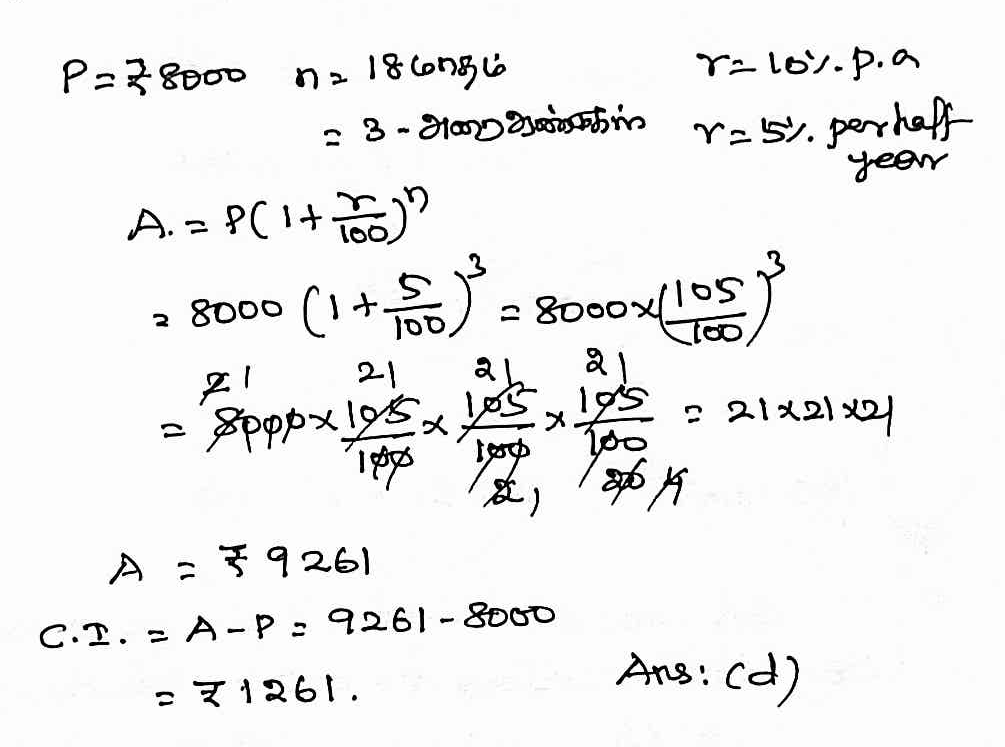 P = ₹ 8000 n = 18 மாதம் r = 10%. p.a
= 3 - அரை ஆண்டுகள் r = 5%. per half year
A. = P(1 + r/100)^n
= 8000 (1 + 5/100)^3 = 8000 × (105/100)^3
= 8000 × 105/100 × 105/100 × 105/100 = 21 × 21 × 21
A = ₹ 9261
C.I. = A - P = 9261 - 8000
= ₹ 1261. Ans: (d)